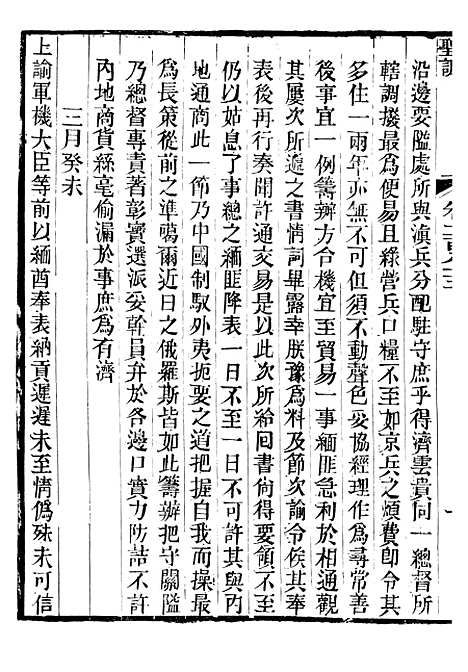 聖訓
沿邊要隘處所與滇兵分配駐守庶乎得濟雲貴同一總督所
轄調撥最為便易且綠營兵口糧不至如京兵之煩費即令其
多住一兩年亦無不可但須不動聲色妥協經理作為尋常善
後事宜一例籌辦方合機宜至貿易一事緬匪急利於相通觀
其屢次所遞之書情詞畢露幸朕豫為料及節次諭令俟其奉
表後再行奏聞許通交易是以此次所給回書尚得要領不至
仍以姑息了事總之緬匪降表一日不至一日不可許其與內
地通商此一節乃中國制馭外夷扼要之道把握自我而操最
為長策從前之準噶爾近日之俄羅斯皆如此籌辦把守關隘
乃總督專責著彰寶選派妥幹員弁於各邊口實力防詰不許
內地商貨絲毫偷漏於事庶為有濟
三月癸未
上諭軍機大臣等前以緬酋奉表納貢遲遲未至情偽殊未可信